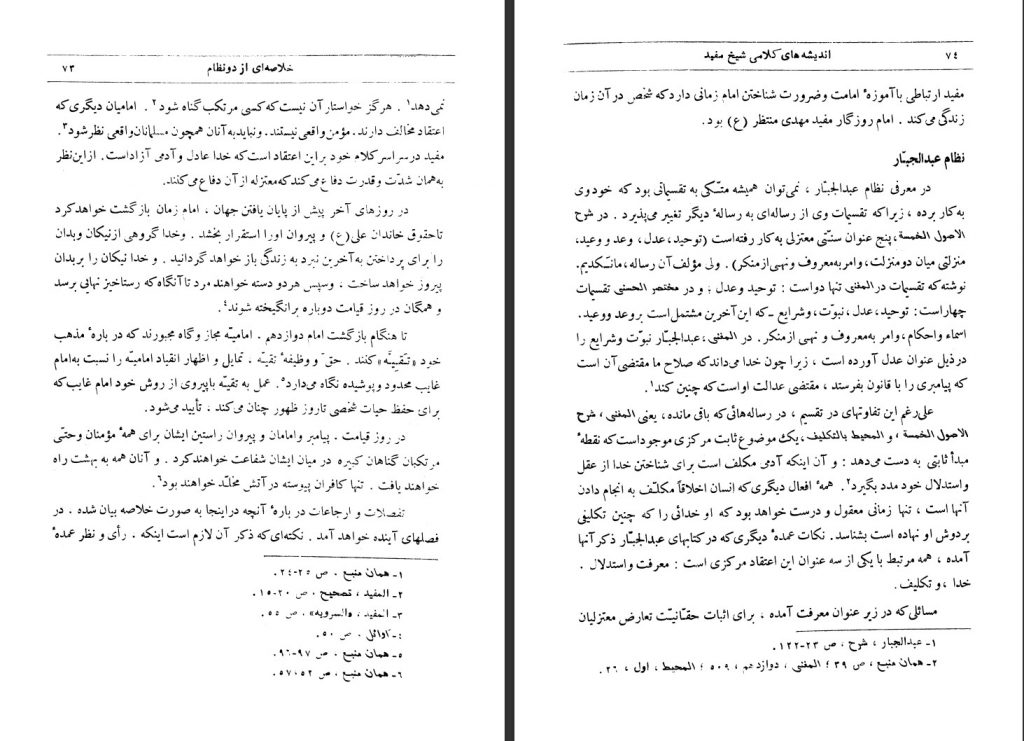 خلاصه‌ای از دو نظام ۷۳
نمی‌دهد۱ . هرگز خواستار آن نیست که کسی مرتکب گناه شود۲ . امامیان دیگری که
اعتقاد مخالف دارند. مؤمن واقعی نیستند. و نباید به آنان همچون مسلمانان واقعی نظر شود۳.
مفید در سراسر کلام خود بر این اعتقاد است که خدا عادل و آدمی آزاد است . از این نظر
به همان شدّت و قدرت دفاع می‌کند که معتزله از آن دفاع می‌کنند.
در روزهای آخر پیش از پایان یافتن جهان ، امام زمان بازگشت خواهد کرد
تا حقوق خاندان علی(ع) و پیروان او را استقرار بخشد . و خدا گروهی از نیکان و بدان
را برای پرداختن به آخرین نبرد به زندگی باز خواهد گردانید . و خدا نیکان را بر بدان
پیروز خواهد ساخت ، و سپس هر دو دسته خواهند مرد تا آنگاه که رستاخیز نهائی برسد
و همگان در روز قیامت دوباره برانگیخته شوند۴
تا هنگام بازگشت امام دوازدهم . امامیّه مجاز و گاه مجبورند که در بارهٔ مذهب
خود «تقیّه» کنند . حقّ و وظیفهٔ تقیّه . تمایل و اظهار انقیاد امامیّه را نسبت به امام
غایب محدود و پوشیده نگاه می‌دارد۵. عمل به تقیّه با پیروی از روش خود امام غایب که
برای حفظ حیات شخصی تا روز ظهور چنان می‌کند . تأیید می‌شود.
در روز قیامت . پیامبر و امامان و پیروان راستین ایشان برای همهٔ مؤمنان وحتّی
مرتکبان گناهان کبیره در میان ایشان شفاعت خواهند کرد . و آنان همه به بهشت راه
خواهند یافت . تنها کافران پیوسته در آتش مخلّد خواهند بود۶
تفصلات و ارجاعات در بارهٔ آنچه در اینجا به صورت خلاصه بیان شده . در
فصلهای آینده خواهد آمد . نکته‌ای که ذکر آن لازم است اینکه . رأی و نظر عمدهٔ
۱ـ همان منبع . ص ۲۵-۲۴.
۲ـ المفید ، تصحیح . ص ۲۰-۱۵.
۳ـ المفید ، «السرویه» . ص ۵۵.
۴ـ اوائل . ص ۵۰.
۵ـ همان منبع . ص ۹۷-۹۶.
۶ـ همان منبع . ص ۵۲،۵۷.
۷۴ اندیشه‌های کلامی شیخ مفید
مفید ارتباطی با آموزهٔ امامت و ضرورت شناختن امام زمانی دارد که شخص در آن زمان
زندگی می‌کند . امام روزگار مفید مهدی منتظر (ع) بود.
نظام عبدالجبّار
در معرفی نظام عبدالجبّار ، نمی‌توان همیشه متّکی به تقسیماتی بود که خود وی
به‌کار برده ، زیرا که تقسیمات وی از رساله‌ای به رسالهٔ دیگر تغییر می‌پذیرد . در شرح
الاصول الخمسة، پنج عنوان سنّتی معتزلی به کار رفته است (توحید،عدل، وعد و وعید،
منزلتی میان دو منزلت، وامر به‌معروف و نهی از منکر) . ولی مؤلف آن رساله، مانکدیم.
نوشته که تقسیمات در المغنی تنها دو است : توحید وعدل ؛ و در مختصر الحسنی تقسیمات
چهار است : توحید،عدل، نبوّت، و شرایع ـ که این آخرین مشتمل است بر وعد ووعید.
اسماء واحکام، وامر به‌معروف و نهی از منکر. در المغنی، عبدالجبّار نبوّت وشرایع را
در ذیل عنوان عدل آورده است ، زیرا چون خدا می‌داند که صلاح ما مقتضی آن است
که پیامبری را با قانون بفرستد ، مقتضی عدالت او است که چنین کند۱.
علی‌رغم این تفاوتهای در تقسیم ، در رساله‌هائی که باقی مانده ، یعنی المغنی ، شرح
الاصول الخمسة ، و المحیط بالتکلیف، یک موضوع ثابت مرکزی موجود است که نقطهٔ
مبدأ ثابتی به دست می‌دهد : و آن اینکه آدمی مکلف است برای شناختن خدا از عقل
واستدلال خود مدد بگیرد۲. همهٔ افعال دیگری که انسان اخلاقاً مکلّف به انجام دادن
آنها است ، تنها زمانی معقول و درست خواهد بود که او خدائی را که چنین تکلیفی
بردوش او نهاده است بشناسد. نکات عمدهٔ دیگری که در کتابهای عبدالجبّار ذکر آنها
آمده ، همه مرتبط با یکی از سه عنوان این اعتقاد مرکزی است : معرفت واستدلال .
خدا ، و تکلیف.
مسائلی که در زیر عنوان معرفت آمده ، برای اثبات حقّانیّت تعارض معتزلیان
۱ـ عبدالجبار ، شرح ، ص ۲۳-۱۲۲.
۲ـ همان منبع ، ص ۳۹ ؛ المغنی ، دوازدهم ، ۵۰۹ ؛ المحیط ، اول ، ۲۶ .